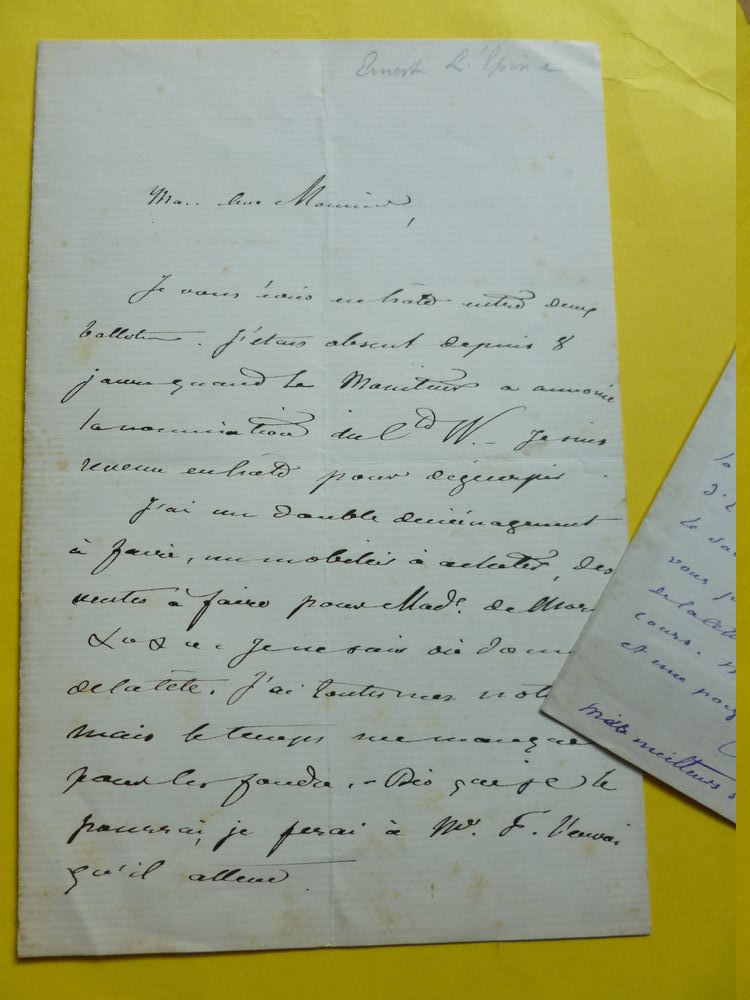 Ernest L'Epine
Mon cher Monsieur,
Je vous écris en hâte entre deux
ballots. J'étais absent depuis 8
jours quand le Moniteur a annoncé
la nomination du Cte W. – Je suis
revenu en hâte pour déguerpir.
J'ai un double déménagement
à faire, un mobilier à acheter, des
ventes à faire pour Made. de Mor
&a &a. Je ne sais où donn
de la tête. J'ai toutes mes not
mais le temps me manque
pour les fondre. – Dès que je le
pourrai, je ferai à Mr. F. l'envoi
qu'il attend.
le
vous p
de la lett
cours.
et une poig
mille meilleurs s